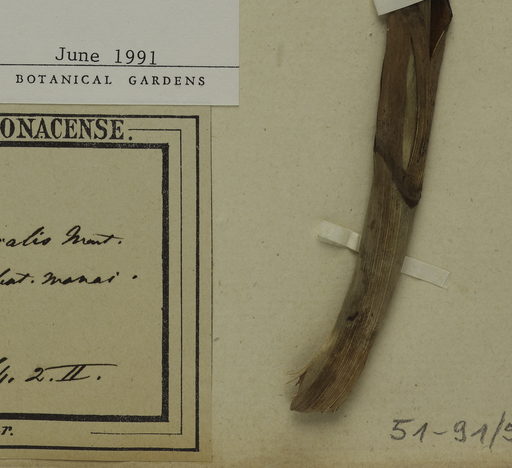 June 1991
BOTANICAL GARDENS
ONACENSE.
alis Mart.
hat. monai.
4. 2. II.
r.
51-91/5